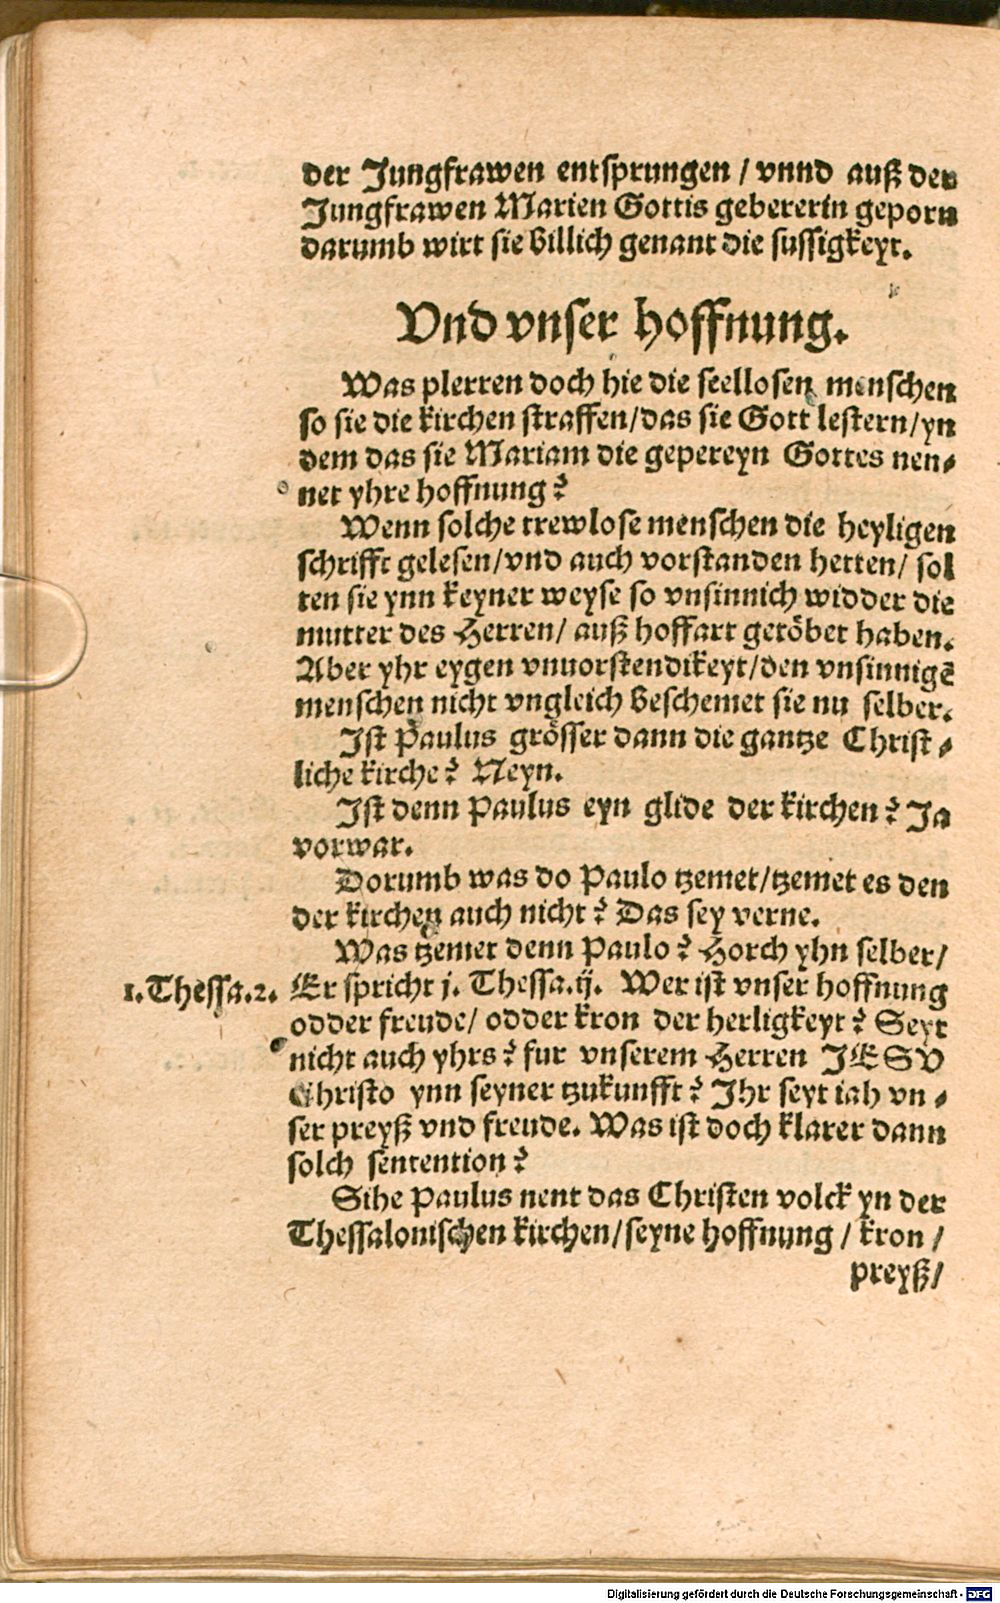 der Jungfrawen entsprungen / vnnd auß der
Jungfrawen Marien Gottis gebererin geporn
darumb wirt sie billich genant die sussigkeyt.
Vnd vnser hoffnung.
Was plerren doch hie die seellosen menschen
so sie die kirchen straffen/das sie Gott lestern/yn
dem das sie Mariam die gepereyn Gottes nen⸗
net yhre hoffnung?
Wenn solche trewlose menschen die heyligen
schrifft gelesen/vnd auch vorstanden hetten/ sol
ten sie ynn keyner weyse so vnsinnich widder die
mutter des Herren/ auß hoffart getöbet haben.
Aber yhr eygen vnuorstendikeyt/den vnsinnigē
menschen nicht vngleich beschemet sie nu selber.
Ist Paulus grösser dann die gantze Christ⸗
liche kirche? Neyn.
Ist denn Paulus eyn glide der kirchen? Ja
vorwar.
Dorumb was do Paulo tzemet/tzemet es den
der kirchen auch nicht? Das sey verne.
Was tzemet denn Paulo? Horch yhn selber/
1.Thessa.2. Er spricht j. Thessa.ij. Wer ist vnser hoffnung
odder freude/ odder kron der herligkeyt? Seyt
nicht auch yhrs? fur vnserem Herren JESV
Christo ynn seyner tzukunfft? Ihr seyt iah vn⸗
ser preyß vnd freude. Was ist doch klarer dann
solch sentention?
Sihe Paulus nent das Christen volck yn der
Thessalonischen kirchen/seyne hoffnung / kron /
preyß/
Digitalisierung gefördert durch die Deutsche Forschungsgemeinschaft - DFG